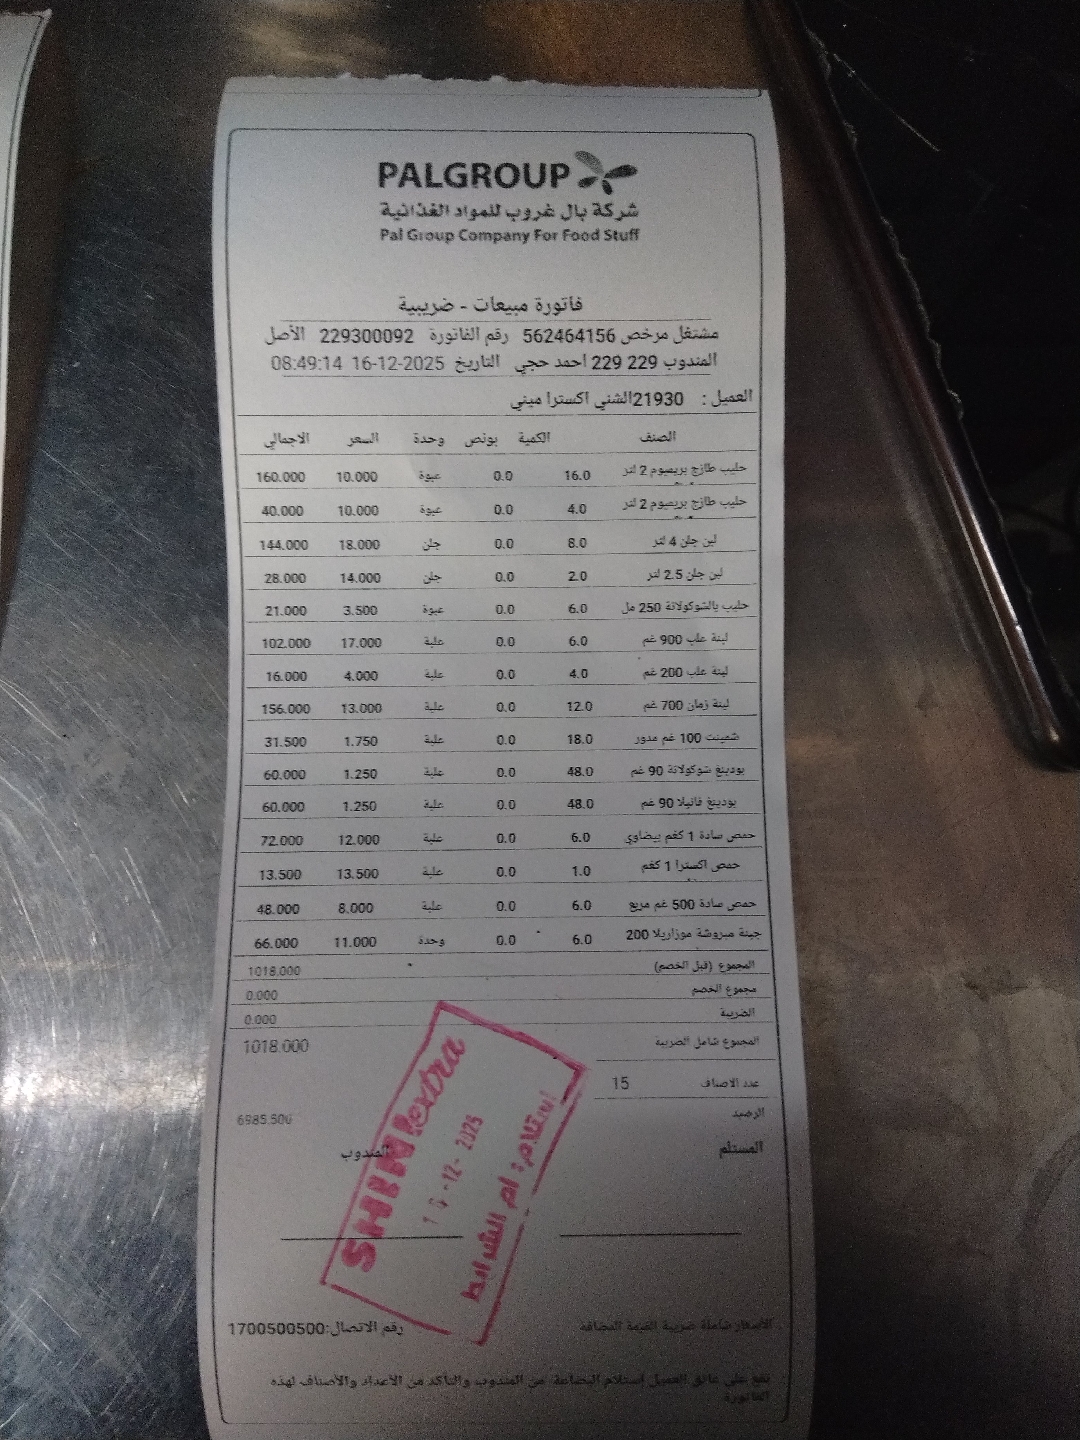 PALGROUP
شركة بال غروب للمواد الغذائية
Pal Group Company For Food Stuff
فاتورة مبيعات - ضريبية
مشتغل مرخص 562464156 رقم الفاتورة 229300092 الأصل
المندوب 229 229 احمد حجي التاريخ 16-12-2025 08:49:14
العميل : 21930الشني اكسترا ميني
الصنف الكمية بونص وحدة السعر الاجمالي
حليب طازج بريميوم 2 لتر 16.0 0.0 عبوة 10.000 160.000
حليب طازج بريميوم 2 لتر 4.0 0.0 عبوة 10.000 40.000
لبن جلن 4 لتر 8.0 0.0 جلن 18.000 144.000
لبن جلن 2.5 لتر 2.0 0.0 جلن 14.000 28.000
حليب بالشوكولاتة 250 مل 6.0 0.0 عبوة 3.500 21.000
لبنة علب 900 غم 6.0 0.0 علبة 17.000 102.000
لبنة علب 200 غم 4.0 0.0 علبة 4.000 16.000
لبنة زمان 700 غم 12.0 0.0 علبة 13.000 156.000
شمينت 100 غم مدور 18.0 0.0 علبة 1.750 31.500
بودينغ شوكولاتة 90 غم 48.0 0.0 علبة 1.250 60.000
بودينغ فانيلا 90 غم 48.0 0.0 علبة 1.250 60.000
حمص سادة 1 كغم بيضاوي 6.0 0.0 علبة 12.000 72.000
حمص اكسترا 1 كغم 1.0 0.0 علبة 13.500 13.500
حمص سادة 500 غم مربع 6.0 0.0 علبة 8.000 48.000
جبنة مبروشة موزاريلا 200 6.0 0.0 وحدة 11.000 66.000
المجموع (قبل الخصم) 1018.000
مجموع الخصم 0.000
الضريبة 0.000
المجموع شامل الضريبة 1018.000
عدد الاصناف 15
الرصيد 6985.500
المستلم المندوب
SHINI extra
16-12-2025
استلام: ام الشرايط
الأسعار شاملة ضريبة القيمة المضافه
رقم الاتصال:1700500500
تقع على عاتق العميل استلام البضاعة من المندوب والتأكد من الأعداد والأصناف لهذه
الفاتورة